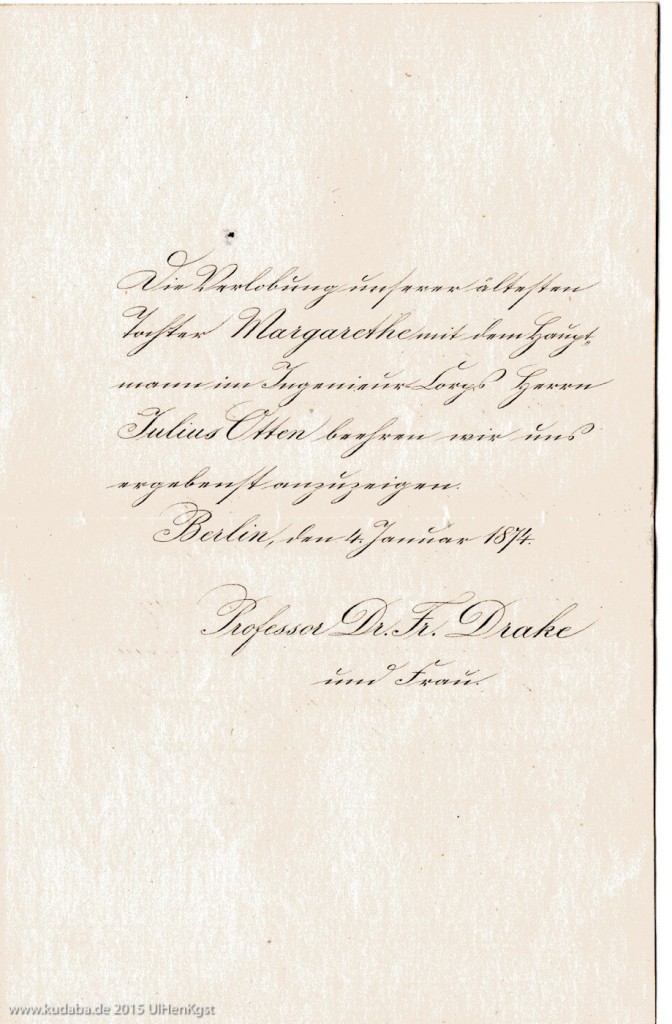 Die Verlobung unserer ältesten
Tochter Margarethe mit dem Haupt-
mann im Ingenieur Corps Herrn
Julius Otten beehren wir uns
ergebenst anzuzeigen.
Berlin, den 4. Januar 1874.
Professor Dr. Fr. Drake
und Frau.
www.kudaba.de 2015 UlHenKgst